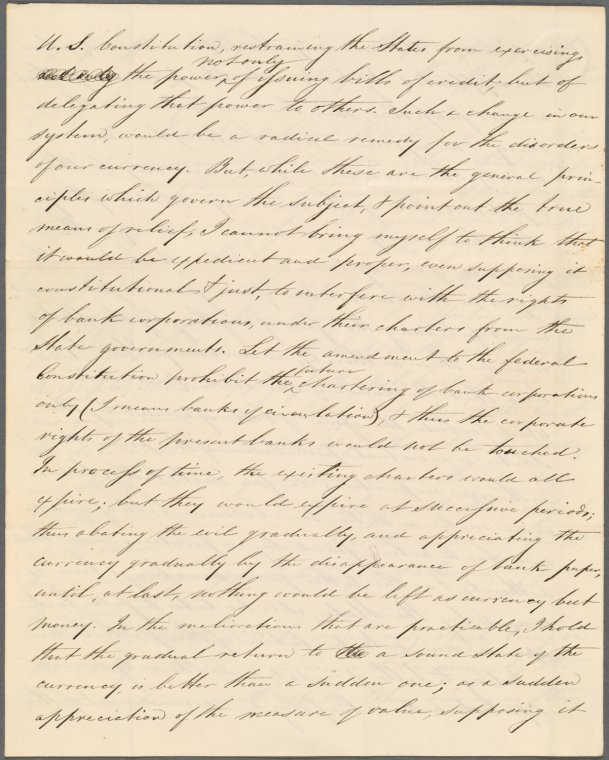 U. S. Constitution, restraining the States from exercising
not only
the power, of issuing bills of credit, but of
delegating that power to others. Such a change in our
system, would be a radical remedy for the disorders
of our currency. But, while these are the general prin-
ciples which govern the subject, & point out the true
means of relief, I cannot bring myself to think that
it would be expedient and proper, even supposing it
constitutional & just, to interfere with the rights
of bank corporations, under their charters from the
State governments. Let the amendment to the federal
future
Constitution prohibit the chartering of bank corporations
only (I mean banks of circulation), & thus the corporate
rights of the present banks would not be touched.
In process of time, the existing charters would all
expire; but they would expire at successive periods;
thus abating the evil gradually, and appreciating the
currency gradually by the disappearance of bank paper,
until, at last, nothing would be left as currency but
money. In the meliorations that are practicable, I hold
that the gradual return to a sound state of the
currency is better than a sudden one; as a sudden
appreciation of the measure of value, supposing it